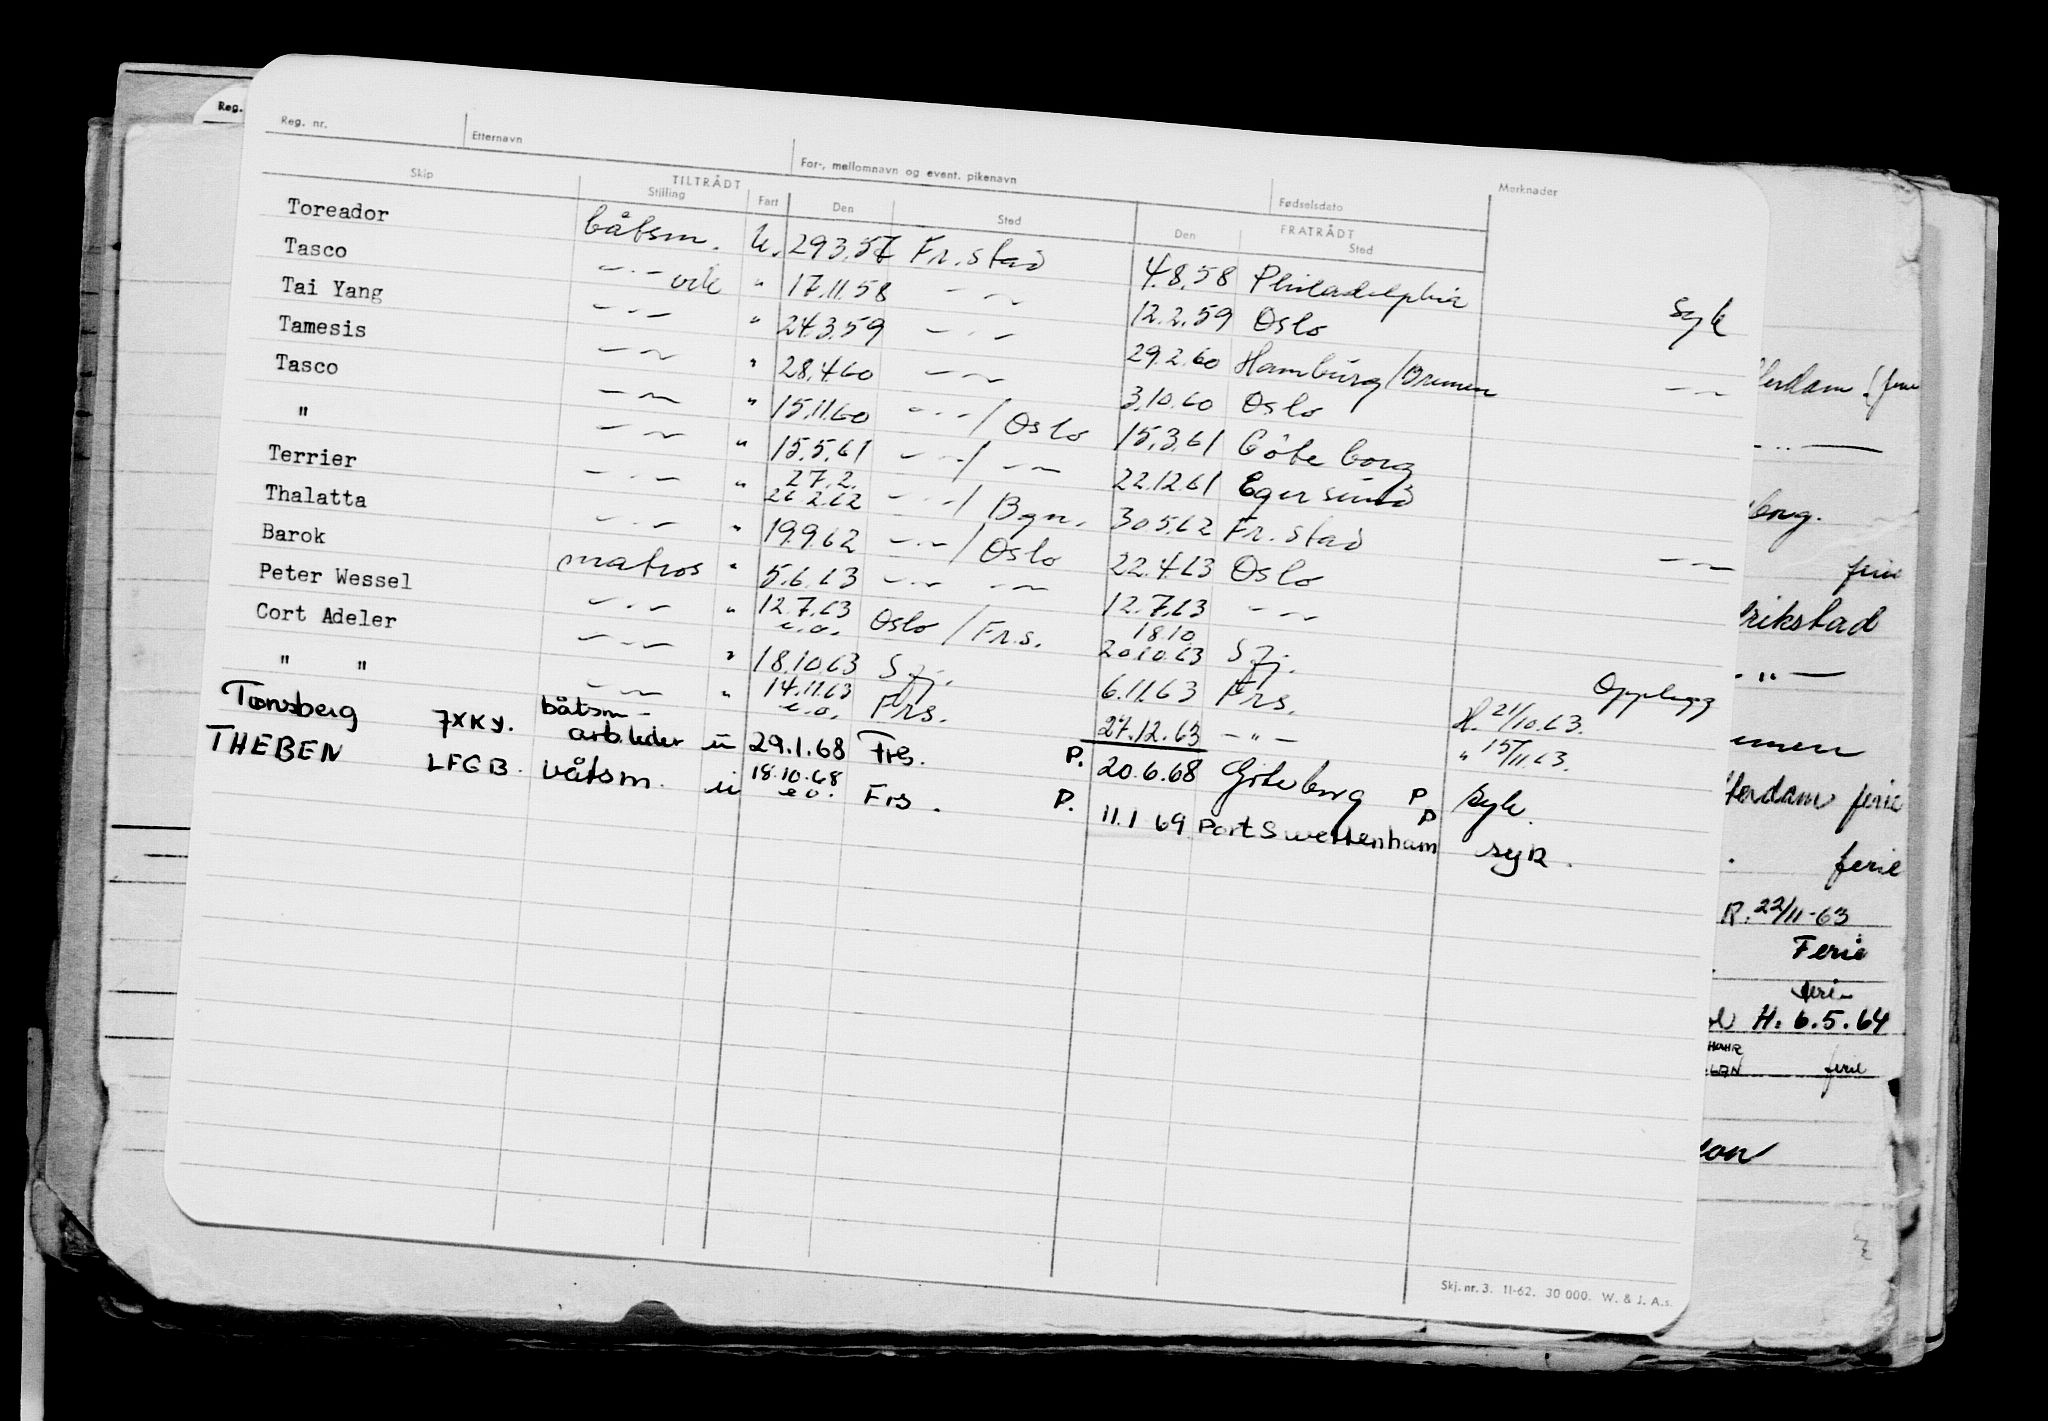 Reg.
Reg. nr. Etternavn For-, mellomnavn og event. pikenavn Fødselsdato Merknader
Skip TILTRÅDT Stilling Fart Den Sted FRATRÅDT Den Sted
Toreador båtsm. U. 29.3.57 Fr.stad 4.8.58 Philadelphia syk
Tasco —·— " 17.11.58 — ~ 12.2.59 Oslo
Tai Yang —·— " 24.3.59 —·— 29.2.60 Hamburg/Bremen — ~
Tamesis — ~ " 28.4.60 — ~ 3.10.60 Oslo
Tasco — ~ " 15.11.60 —·—/Oslo 15.3.61 Göteborg
" — ~ " 15.5.61 —·—/— ~ 22.12.61 Egersund
Terrier —·— " 27.2. 26.2.62 —·—/Bgn. 30.5.62 Fr.stad
Thalatta —·— " 19.9.62 —·—/Oslo 22.4.63 Oslo — ~
Barok matros " 5.6.63 —·— — ~ 12.7.63 — ~
Peter Wessel —·— " 12.7.63 e.o. Oslo/Frs. 18.10 20.10.63 Sfj. Opplegg
Cort Adeler —·— " 18.10.63 Sfj. 6.11.63 Frs. H. 21/10.63.
" " — ~ " 14.11.63 e.o. Frs. 27.12.63 — " — " 15/11.63.
Tønsberg JXKY. båtsm- arb.leder u 29.1.68 Frs. P. 20.6.68 Göteborg P syk.
THEBEN LFGB. båtsm. u 18.10.68 e.o. Frs. P. 11.1 69 Port Swettenham P syk.
terdam (ferie
— ·· —
borg.
ferie
drikstad
— " —
emen
tterdam ferie
ferie
R. 22/11-63
Ferie
feri-
H. 6.5.64
ferie
Skj. nr. 3. 11-62. 30 000. W. & J. A.s.